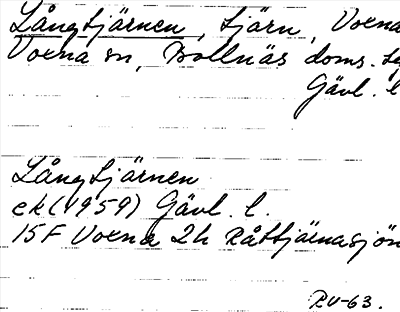 Långtjärnen, tjärn, Voxna
Voxna sn, Bollnäs doms.
Gävl. l
Långtjärnen
ek (1959) Gävl. l.
15F Voxna 2h Råttjärnasjön
RV-63.